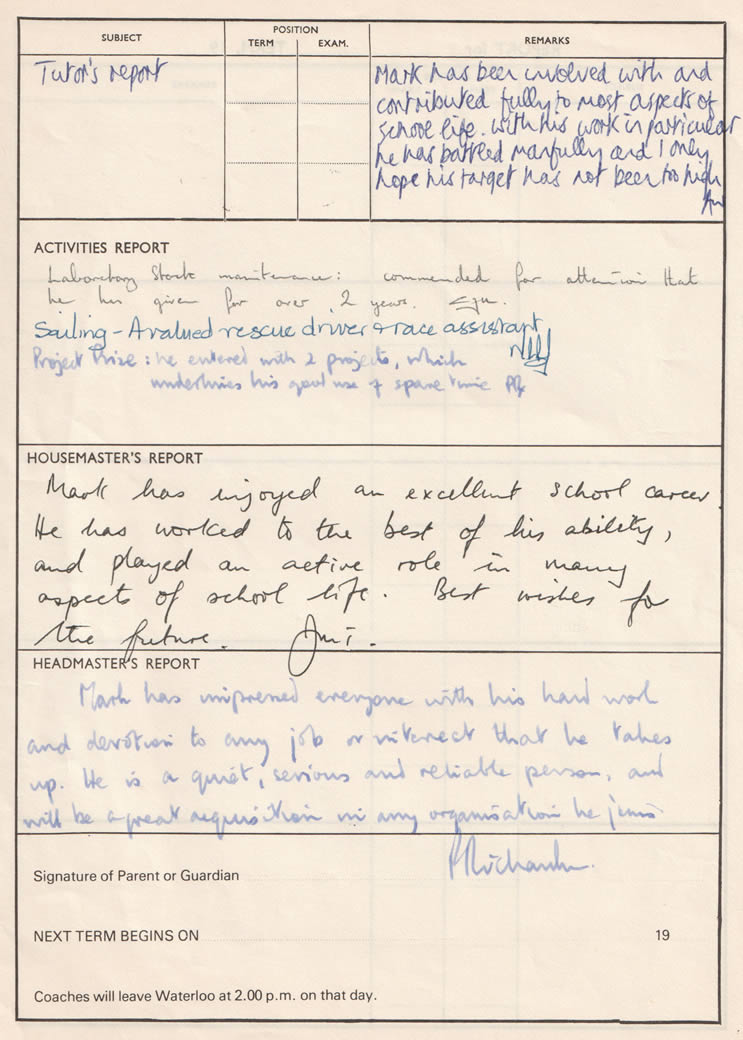 SUBJECT POSITION REMARKS
TERM EXAM.
Tutor's report
Mark has been involved with and
contributed fully to most aspects of
school life. With his work in particular
he has battled manfully and I only
hope his target has not been too high
ACTIVITIES REPORT
Laboratory Stock maintenance: commended for attention that
he has given for over 2 years.
Sailing - A valued rescue driver & race assistant
Project Prize: he entered with 2 projects, which
underlines his good use of spare time
HOUSEMASTER'S REPORT
Mark has injoyed an excellent school career.
He has worked to the best of his ability,
and played an active role in many
aspects of school life. Best wishes for
the future.
HEADMASTER'S REPORT
Mark has impressed everyone with his hard work
and devotion to any job or interest that he takes
up. He is a quiet, serious and reliable person, and
will be a great acquisition in any organisation he joins
Signature of Parent or Guardian
NEXT TERM BEGINS ON 19
Coaches will leave Waterloo at 2.00 p.m. on that day.